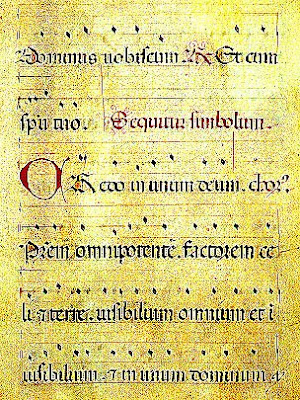 Dominus uobiscum ℟ Et cum
spũ tuo. Sequitur simbolum.
CRedo in unum deum. chor⁹.
Prẽm omnipotentẽ. factorem ce
li ⁊ terre. uisibilium omnium et i
uisibilium. ⁊ in unum dominum